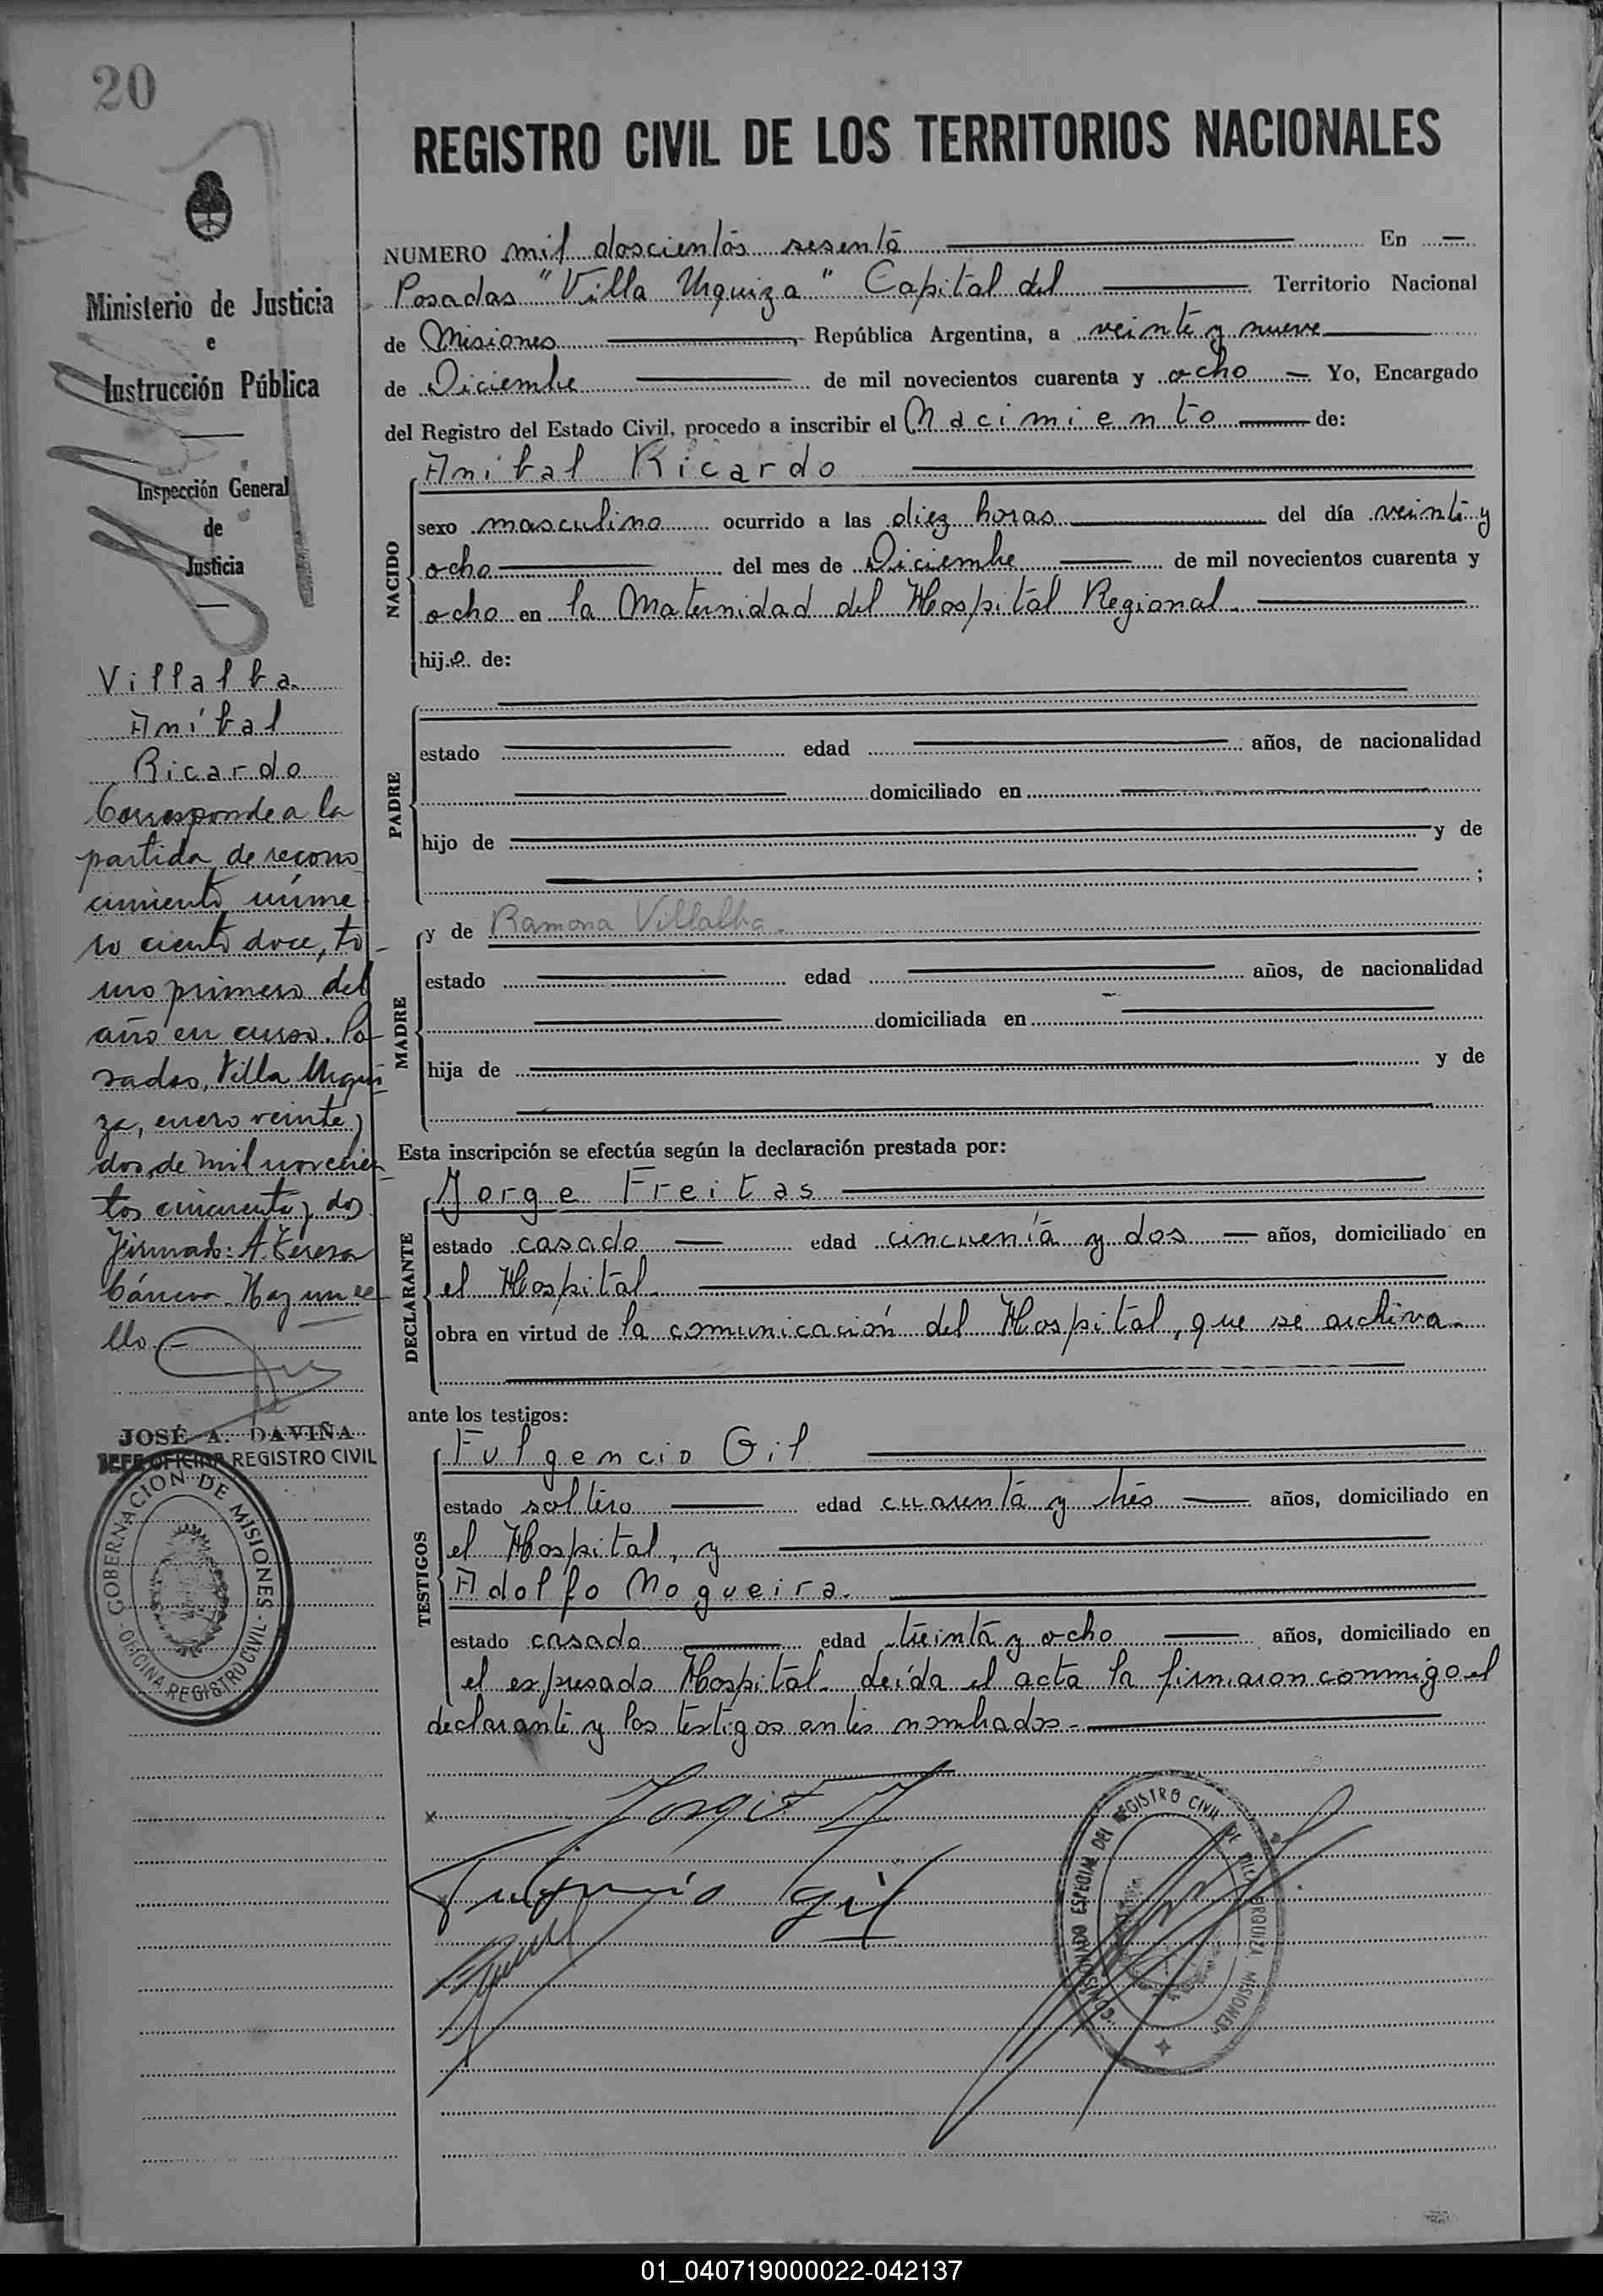 20
REGISTRO CIVIL DE LOS TERRITORIOS NACIONALES
Ministerio de Justicia
e
Instrucción Pública
Inspección General
de
Justicia
Villalba
Aníbal
Ricardo
Corresponde a la
partida de recono
cimiento núme
ro ciento doce, to-
mo primero del
año en curso. Po-
sadas, Villa Urqui
za, enero veinte y
dos, de mil novecien
tos cincuenta y dos
Firmado: A. Teresa
Hay un se
llo.-
JOSÉ A. DAVIÑA
JEFE OFICINA REGISTRO CIVIL
GOBERNACION DE MISIONES - OFICINA REGISTRO CIVIL -
NUMERO mil doscientos sesenta En
Posadas "Villa Urquiza" Capital del Territorio Nacional
de Misiones, República Argentina, a veinte y nueve
de Diciembre de mil novecientos cuarenta y ocho Yo, Encargado
del Registro del Estado Civil, procedo a inscribir el Nacimiento de:
NACIDO
Anibal Ricardo
sexo masculino ocurrido a las diez horas del día veinte y
ocho del mes de Diciembre de mil novecientos cuarenta y
ocho en la Maternidad del Hospital Regional.
hijo de:
PADRE
estado edad años, de nacionalidad
domiciliado en
hijo de y de
;
MADRE
y de Ramona Villalba.
estado edad años, de nacionalidad
domiciliada en
hija de y de
Esta inscripción se efectúa según la declaración prestada por:
DECLARANTE
Jorge Freitas
estado casado edad cincuenta y dos años, domiciliado en
el Hospital.
obra en virtud de la comunicación del Hospital, que se archiva.
ante los testigos:
TESTIGOS
Fulgencio Gil
estado soltero edad cuarenta y tres años, domiciliado en
el Hospital, y
Adolfo Nogueira.
estado casado edad treinta y ocho años, domiciliado en
el expresado Hospital. Leída el acta la firmaron conmigo el
declarante y los testigos antes nombrados.
Fulgencio Gil
COMISIONADO ESPECIAL DEL REGISTRO CIVIL DE VILLA URQUIZA MISIONES
01_040719000022-042137